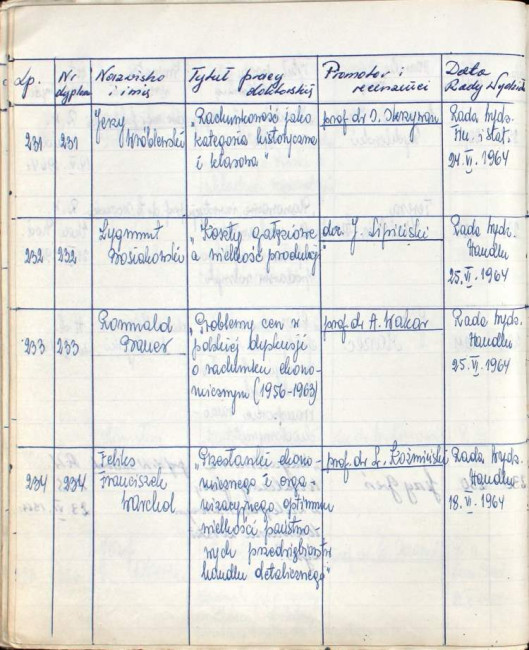 Lp.
Nr
dyplomu
Nazwisko
i imię
Tytuł pracy
doktorskiej
Promotor i
recenzenci
Data
Rady Wydziału
231
231
Jerzy
Wróblewski
„Rachunkowość jako
kategoria historyczna
i klasowa"
prof. dr S. Skrzywan
Rada Wydz.
Fin. i Stat.
24.VI.1964
232
232
Zygmunt
Bosiakowski
„Koszty gałęziowe
a wielkość produkcji"
doc. J. Lipiński
Rada Wydz.
Handlu
25.VI.1964
233
233
Romuald
Bauer
„Problemy cen w
polskiej dyskusji
o rachunku ekono-
micznym (1956-1963)
prof. dr A. Wakar
Rada Wydz.
Handlu
25.VI.1964
234
234
Feliks
Franciszek
Warchoł
„Przesłanki ekono-
micznego i orga-
nizacyjnego optimum
wielkości państwo-
wych przedsiębiorstw
handlu detalicznego"
prof. dr L. Koźmiński
Rada Wydz.
Handlu
18.VI.1964